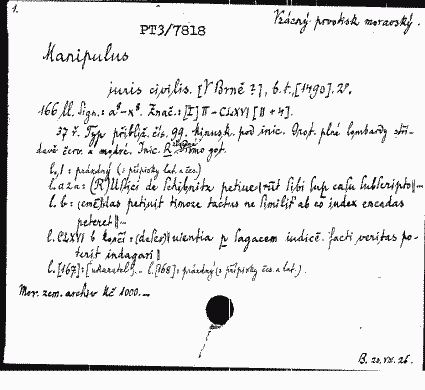 1.
Vzácný prvotisk moravský.
PT3/7818
Manipulus
juris civilis. [V Brně ?], b. t., [1490]. 2°.
166 ll. Sign.: a⁸-x⁸. Znač.: [I] II - CLXVI [II + 4].
37 ř. Typ přibliž. čís. 99. minusk. pod inic. Opat. plné lombardy stří-
davě červ. a modré. Inic. R písmo got.
l. 1: prázdný (s přípisky lat. a čes.)
l. a2a: (R) petiuerūt sibi sup casu subscripto ||...
l. b: petiuit tactus ne similit ab eo index
peteret ||...
l. CLXVI b končí: (defer)||uientia p sagacem iudicē. facti veritas po-
terit indagari ||
l. [167]: [ukazatel]... l. [168]: prázdný (s přípisky čes. a lat.).
Mor. zem. archiv Kč 1000.—
B. 20. VII. 26.